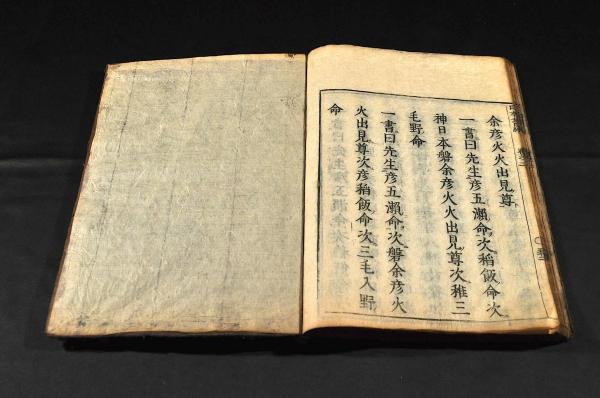 余彦火火出見尊
一書曰先生彦五瀬命次稻飯命次
神日本磐余彦火火出見尊次稚三
毛野命
一書曰先生彦五瀬命次磐余彦火
火出見尊次彦稻飯命次三毛入野
命